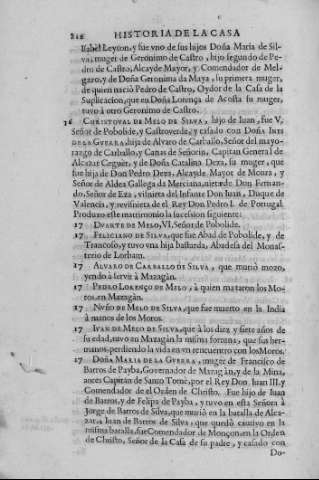 212 HISTORIA DE LA CASA
Isabel Leyton, y fue vno de sus hijos Doña Maria de Sil-
va, muger de Geronimo de Castro, hijo segundo de Pe-
dro de Castro, Alcayde Mayor, y Comendador de Mel-
gazo, y de Doña Geronima da Maya, su primera muger,
de quien nació Pedro de Castro, Oydor de la Casa de la
Suplicacion, que en Doña Lorença de Acosta su muger,
tuvo à otro Geronimo de Castro.
16 CHRISTOVAL DE MELO DE SILVA, hijo de Juan, fue V.
Señor de Pobolide, y Castroverde, y casado con DOÑA INES
DE LA GVERRA, hija de Alvaro de Carballo, Señor del mayo-
razgo de Carballo, y Canas de Señorin, Capitan General de
Alcazar Ceguer, y de Doña Catalina Deza, su muger, que
fue hija de Don Pedro Deza, Alcayde Mayor de Moura, y
Señor de Aldea Gallega da Merciana, nieta de Don Fernan-
do, Señor de Eza, visnieta del Infante Don Juan, Duque de
Valencia, y revisnieta de el Rey Don Pedro I. de Portugal.
Produxo este matrimonio la sucesion siguiente:
17 DVARTE DE MELO, VI. Señor de Pobolide.
17 FELICIANO DE SILVA, que fue Abad de Pobolide, y de
Trancoso, y tuvo vna hija bastarda, Abadesa del Monas-
terio de Lorbam.
17 ALVARO DE CARBALLO DE SILVA, que murió mozo,
yendo à servir à Mazagàn.
17 PEDRO LORENÇO DE MELO, à quien mataron los Mo-
ros en Mazagàn.
17 NVÑO DE MELO DE SILVA, que fue muerto en la India
à manos de los Moros.
17 IVAN DE MELO DE SILVA, que à los diez y siete años de
su edad, tuvo en Mazagàn la misma fortuna, que sus her-
manos, perdiendo la vida en vn recuentro con los Moros.
17 DOÑA MARIA DE LA GVERRA, muger de Francisco de
Barros de Payba, Governador de Mazagàn, y de la Mina,
antes Capitan de Santo Tomè, por el Rey Don Juan III. y
Comendador de el Orden de Christo. Fue hijo de Juan
de Barros, y de Felipa de Payba, y tuvo en esta Señora à
Jorge de Barros de Silva, que murió en la batalla de Alca-
zar, à Juan de Barros de Silva, que quedò cautivo en la
misma batalla, fue Comendador de Monçon, en la Orden
de Christo, Señor de la Casa de su padre, y casado con
Do-